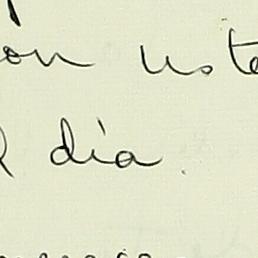 on uste
l día.